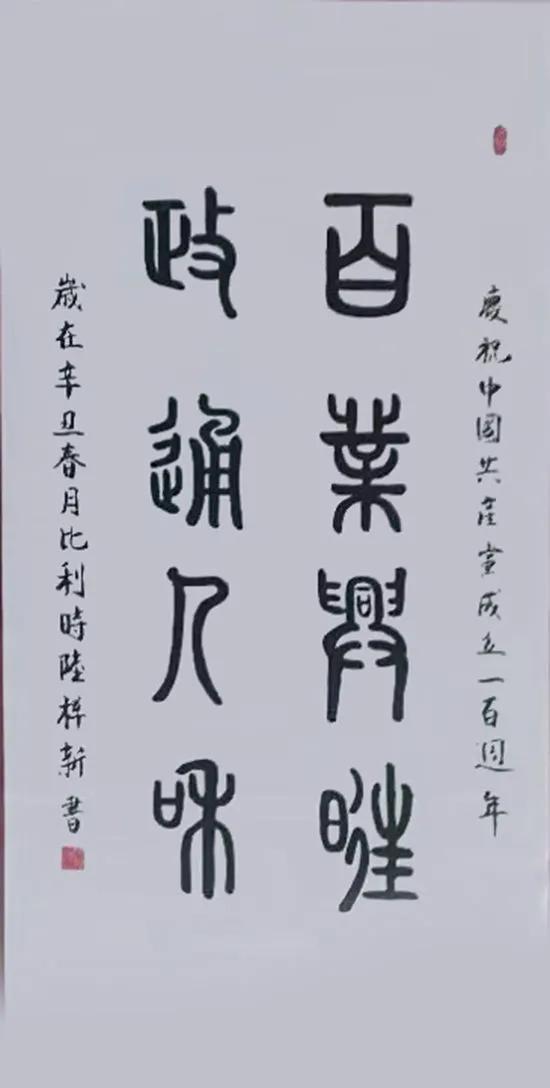 慶祝中國共産黨成立一百週年
百業興旺
政通人和
歲在辛丑春月比利時陸梓新書